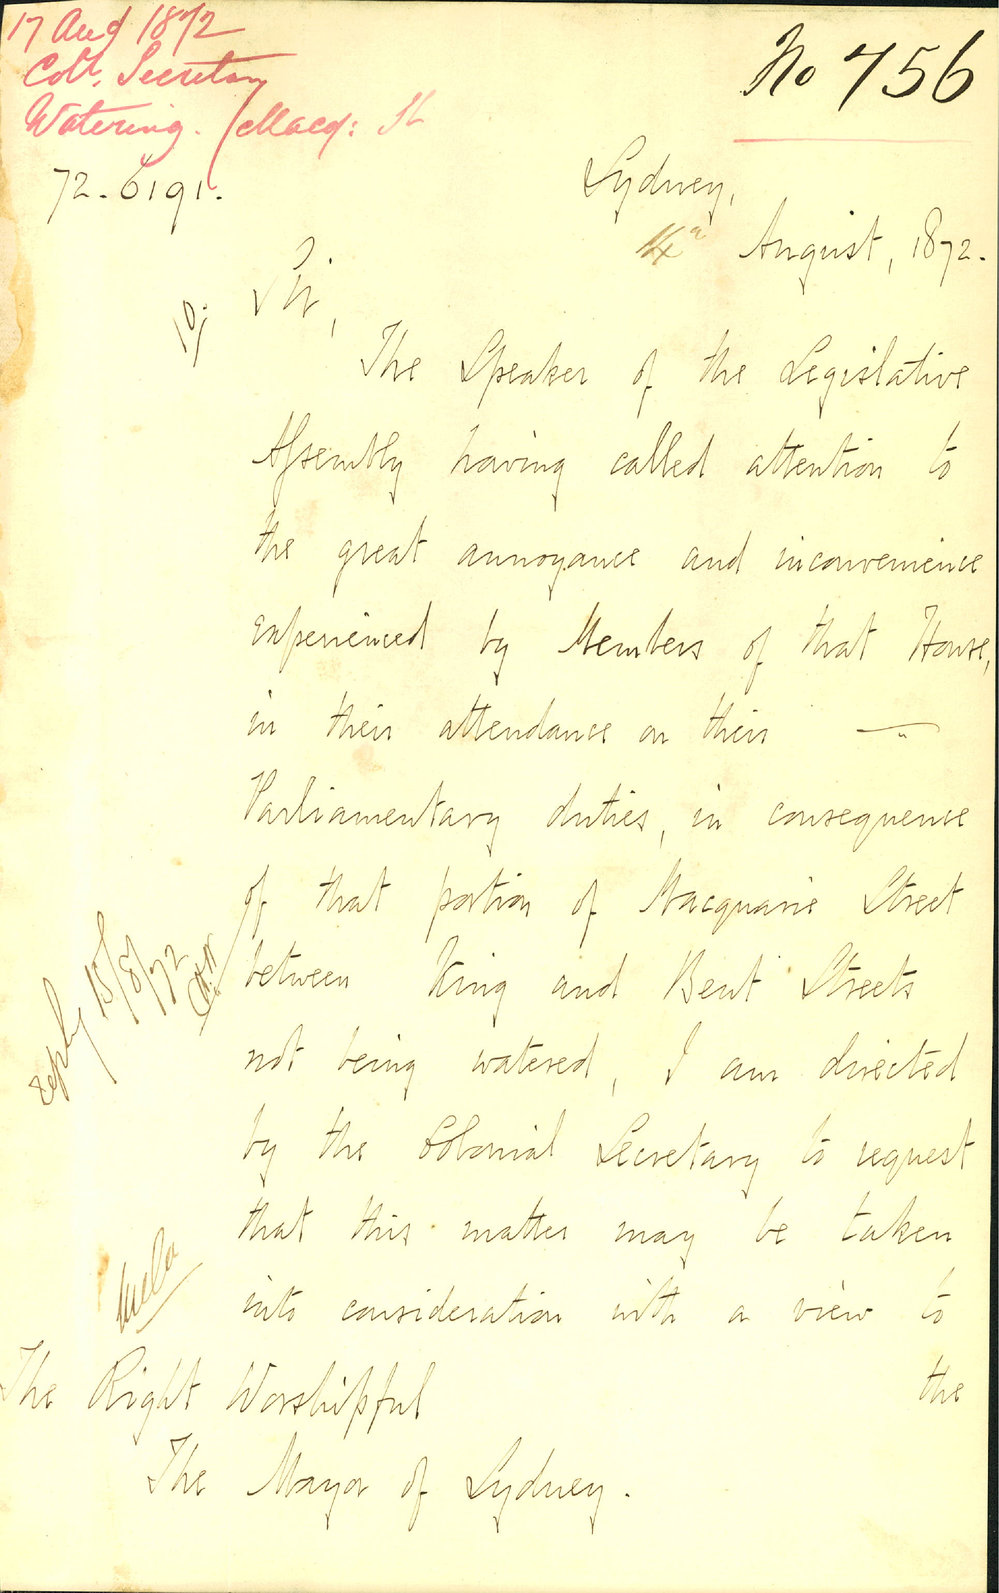 17 Aug 1872
Coll. Secretary
Watering. Macq: St
No 756
72-6191.
Sydney,
August, 1872.
Sir,
The Speaker of the Legislative
Assembly having called attention to
the great annoyance and inconvenience
experienced by Members of that House,
in their attendance on their
Parliamentary duties, in consequence
of that portion of Macquarie Street
between King and Bent Streets
not being watered, I am directed
by the Colonial Secretary to request
that this matter may be taken
into consideration with a view to
the
The Right Worshipful
The Mayor of Sydney.
reply 15/8/72